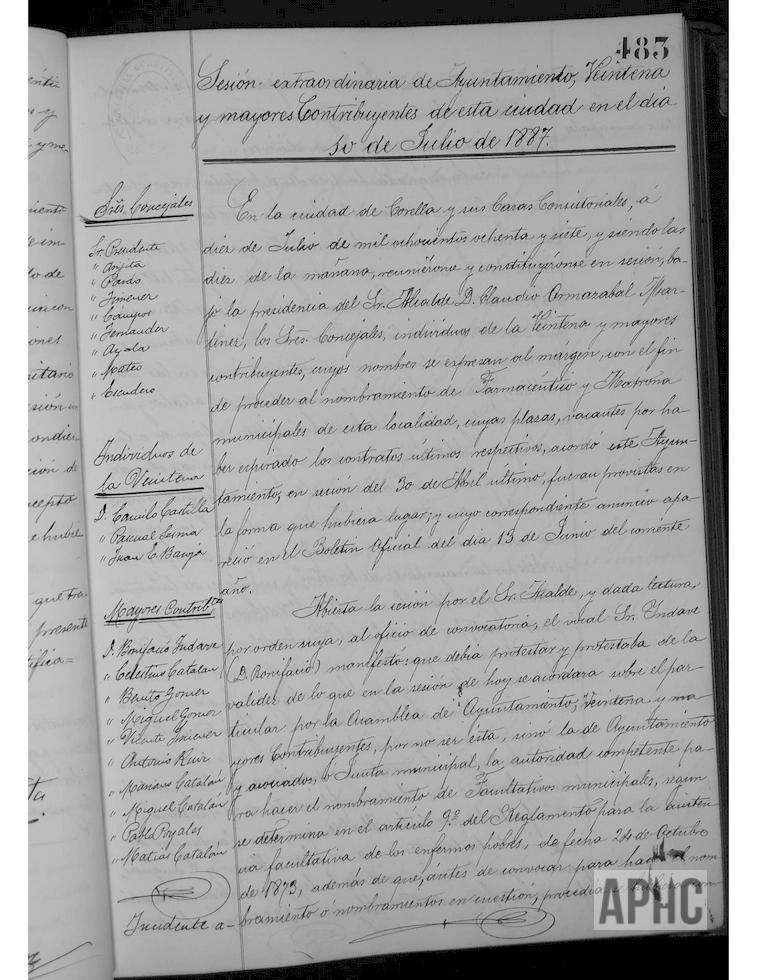 483
Sesión extraordinaria de Ayuntamiento, Veintena
y mayores Contribuyentes de esta ciudad en el dia
10 de Julio de 1887.
Sres. Concejales
Sr. Presidente
" Arnjita
" Pardo
" Jimenez
" Campos
" Fernandez
" Ayala
" Mateo
" Escudero
Individuos de
la Veintena
D. Camilo Castilla
" Pascual Sesma
" Juan E. Bayja
Mayores Contribtes
D. Bonifacio Yndave
" Celestino Catalan
" Benito Gomez
" Miguel Gomez
" Vicente Jimenez
" Antonio Ruiz
" Mariano Catalán
" Miguel Catalán
" Pablo Poyales
" Matias Catalán
Incidente a-
En la ciudad de Corella y sus Casas Consistoriales, á
diez de Julio de mil ochocientos ochenta y siete, y siendo las
diez de la mañana, reuniéronse y constituyéronse en sesión, ba-
jo la presidencia del Sr. Alcalde D. Claudio Ormazabal Mar-
tinez, los Sres. Concejales, individuos de la Veintena y mayores
contribuyentes, cuyos nombres se expresan al márgen, con el fin
de proceder al nombramiento de Farmacéutico y Matrona
municipales de esta localidad, cuyas plazas, vacantes por ha-
ber espirado los contratos últimos respectivos, acordó este Ayun-
tamiento, en sesión del 30 de Abril último, fueran provistas en
la forma que hubiera lugar; y cuyo correspondiente anuncio apa-
reció en el Boletin Oficial del dia 13 de Junio del corriente
año.
Abierta la sesión por el Sr. Alcalde, y dada lectura,
por orden suya, al oficio de convocatoria, el vocal Sr. Yndave
(D. Bonifacio) manifestó: que debia protestar y protestaba de la
validez de lo que en la sesión de hoy se acordara sobre el par-
ticular por la Asamblea de Ayuntamiento, Veintena y ma-
yores Contribuyentes, por no ser esta, sinó la de Ayuntamiento
y asociados, ó Junta municipal, la autoridad competente pa-
ra hacer el nombramiento de Facultativos municipales, segun
se determina en el artículo 9.º del Reglamento para la asisten-
cia facultativa de los enfermos pobres, de fecha 24 de Octubre
de 1873, además de que, ántes de convocar para hacer el nom-
bramiento ó nombramientos en cuestión, procedia
APHC